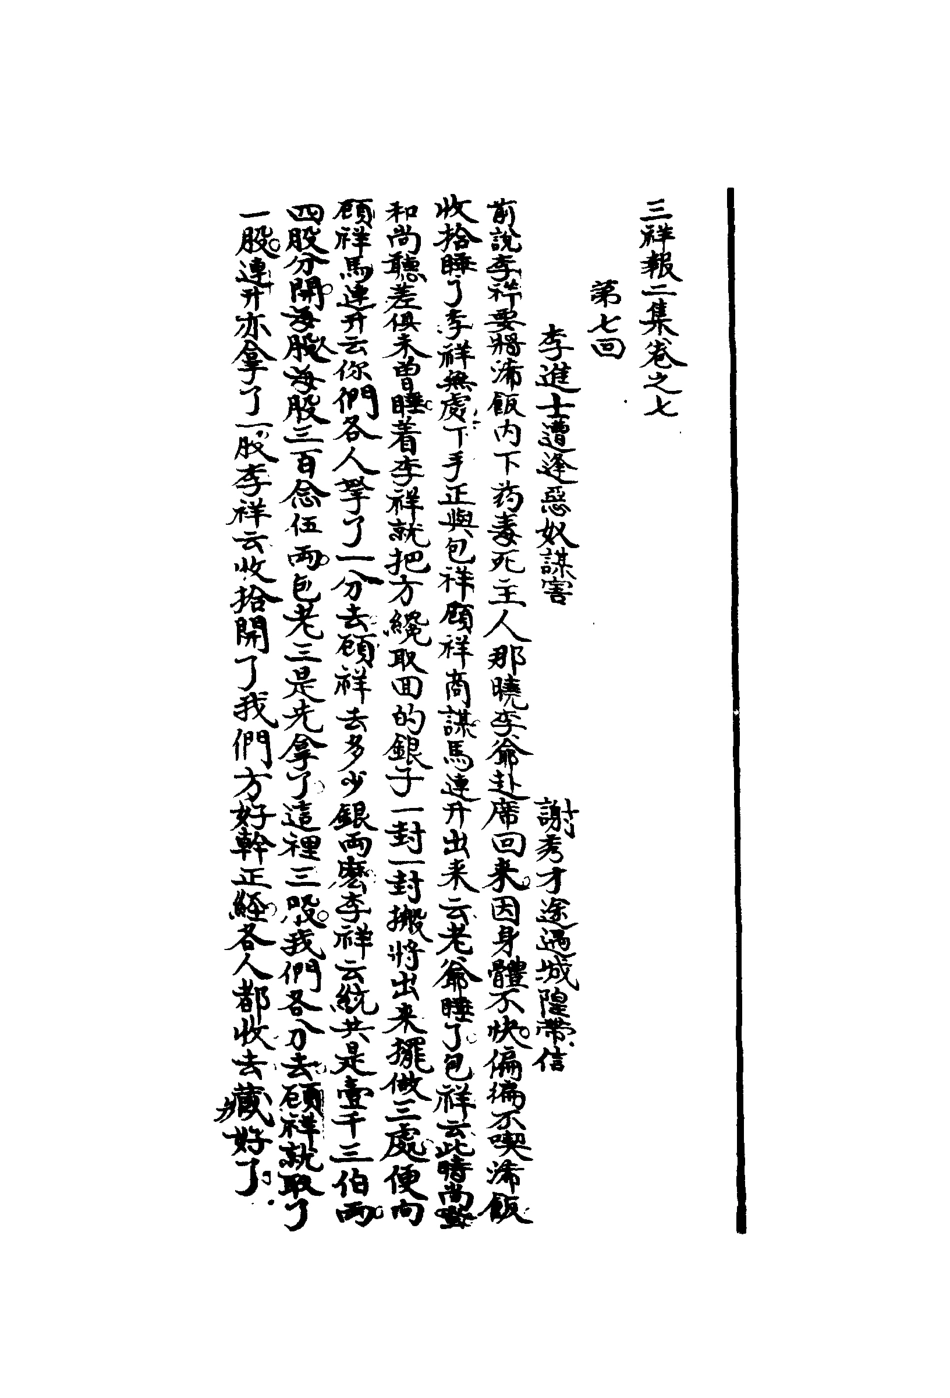 三祥報二集卷之七
第七回
李進士遭逢惡奴謀害　謝秀才途遇城隍帶信
前說李祥要將浠飯內下药毒死主人那曉李爺赴席回来因身體不快偏偏不喫浠飯
收拾睡了李祥無處下手正與包祥顧祥商謀馬連升出来云老爺睡了包祥云此時尚
和尚聽差俱未曾睡着李祥就把方纔取回的銀子一封一封搬將出来擺做三處便向
顧祥馬連升云你們各人拏了一分去顧祥去多少銀両麽李祥云統共是壹千三伯両
四股分開每股每股三百念伍両包老三是先拿了這裡三股我們各分去顧祥就取了
一股連升亦拿了一股李祥云收拾開了我們方好幹正經各人都收去藏好了